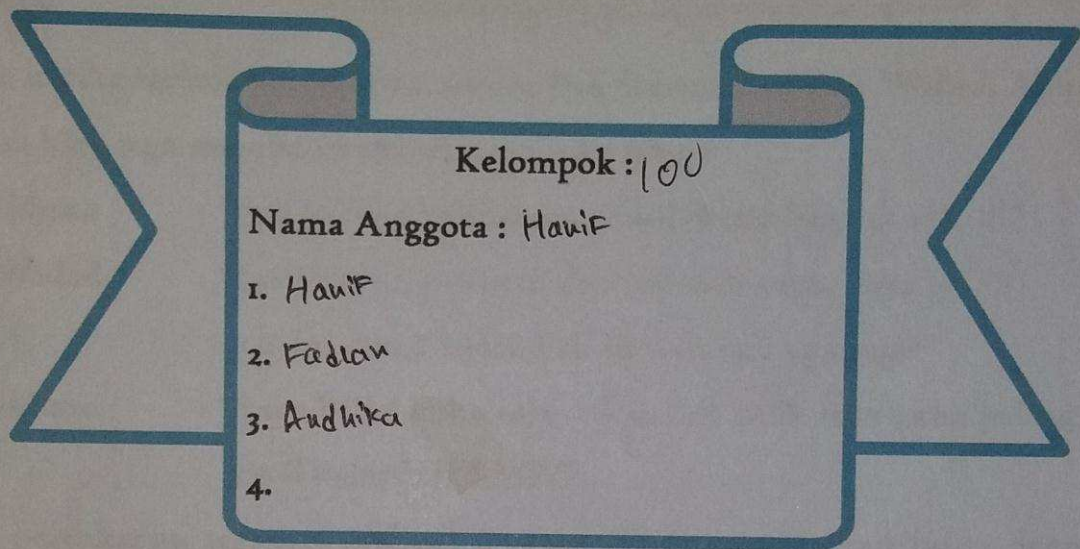 Kelompok : 100
Nama Anggota : Hanif
1. Hanif
2. Fadlan
3. Andhika
4.